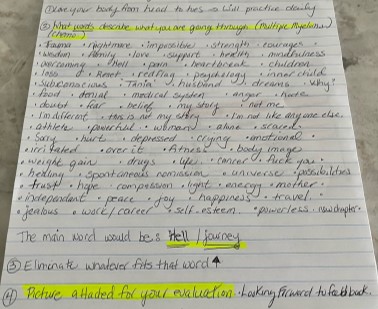 ① Clear your body from head to toes so will practice cleanly
② What words describe what you are going through (Multiple Myeloma) (chemo)
• trauma • nightmare • impossible • strength • courage
• wisdom • family • love • support • health • mindfulness
• overcoming • Hell • pain • heartbreak • children
• loss • Reset • red flag • psychology • inner child
• subconscious • Tania • husband • dreams • Why?
• food • denial • medical system • anger • hate
• doubt • fear • belief • my story • not me
• I'm different • this is not my story • I'm not like anyone else
• athlete • powerful • woman • alone • scared
• Sorry • hurts • depressed • crying • emotional
• irritated • over it • fitness • body image
• weight gain • drugs • life • cancer • fuck you •
• healing • spontaneous remission • universe • possibilities
• trust • hope • compassion • light • energy • mother •
• independent • peace • joy • happiness • travel •
• jealous • work/career • self-esteem • powerless • new chapter •
The main word would be: Hell / journey
③ Eliminate whatever fits that word ↑
④ Picture attached for your evaluation • Looking forward to feedback.